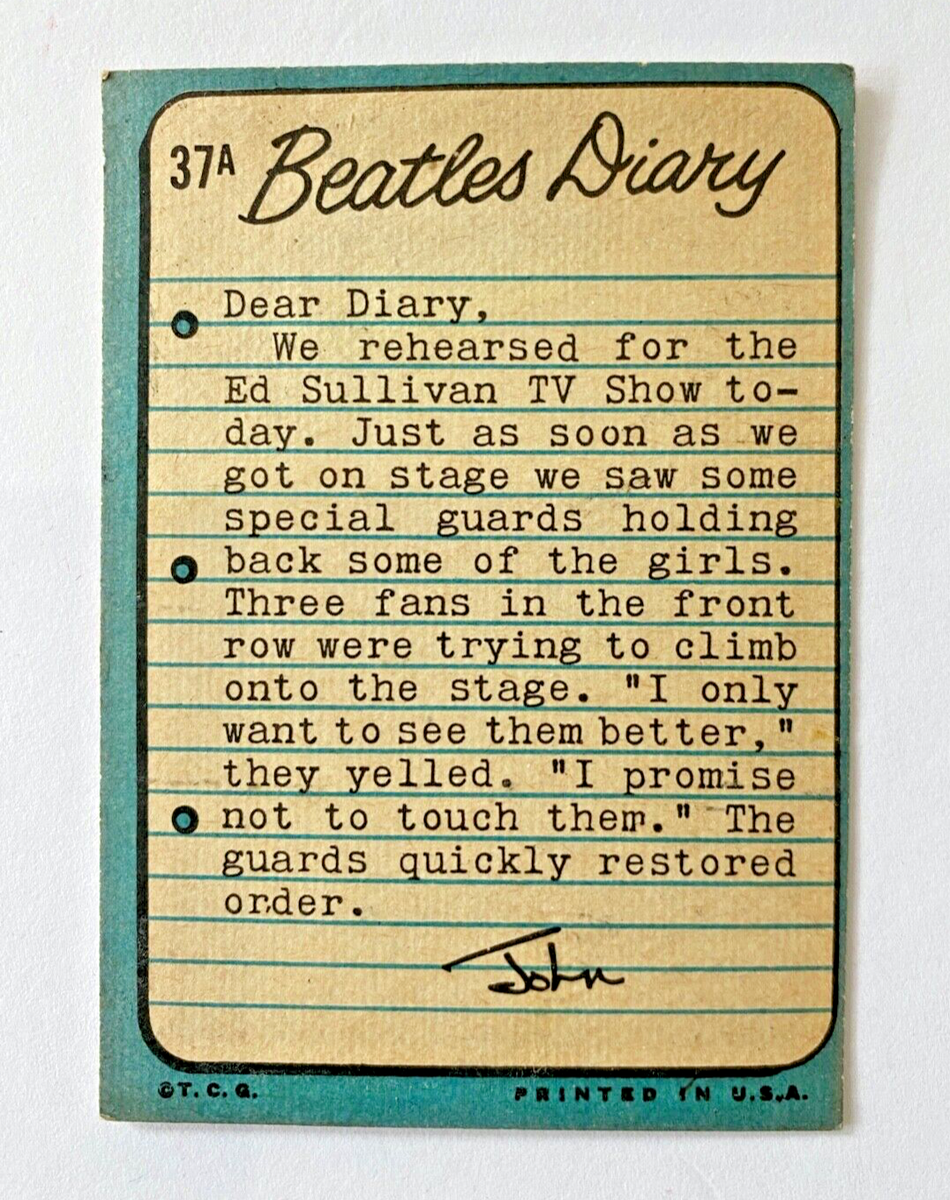 37A Beatles Diary
Dear Diary,
We rehearsed for the
Ed Sullivan TV Show to-
day. Just as soon as we
got on stage we saw some
special guards holding
back some of the girls.
Three fans in the front
row were trying to climb
onto the stage. "I only
want to see them better,"
they yelled. "I promise
not to touch them." The
guards quickly restored
order.
John
©T. C. G. PRINTED IN U.S.A.